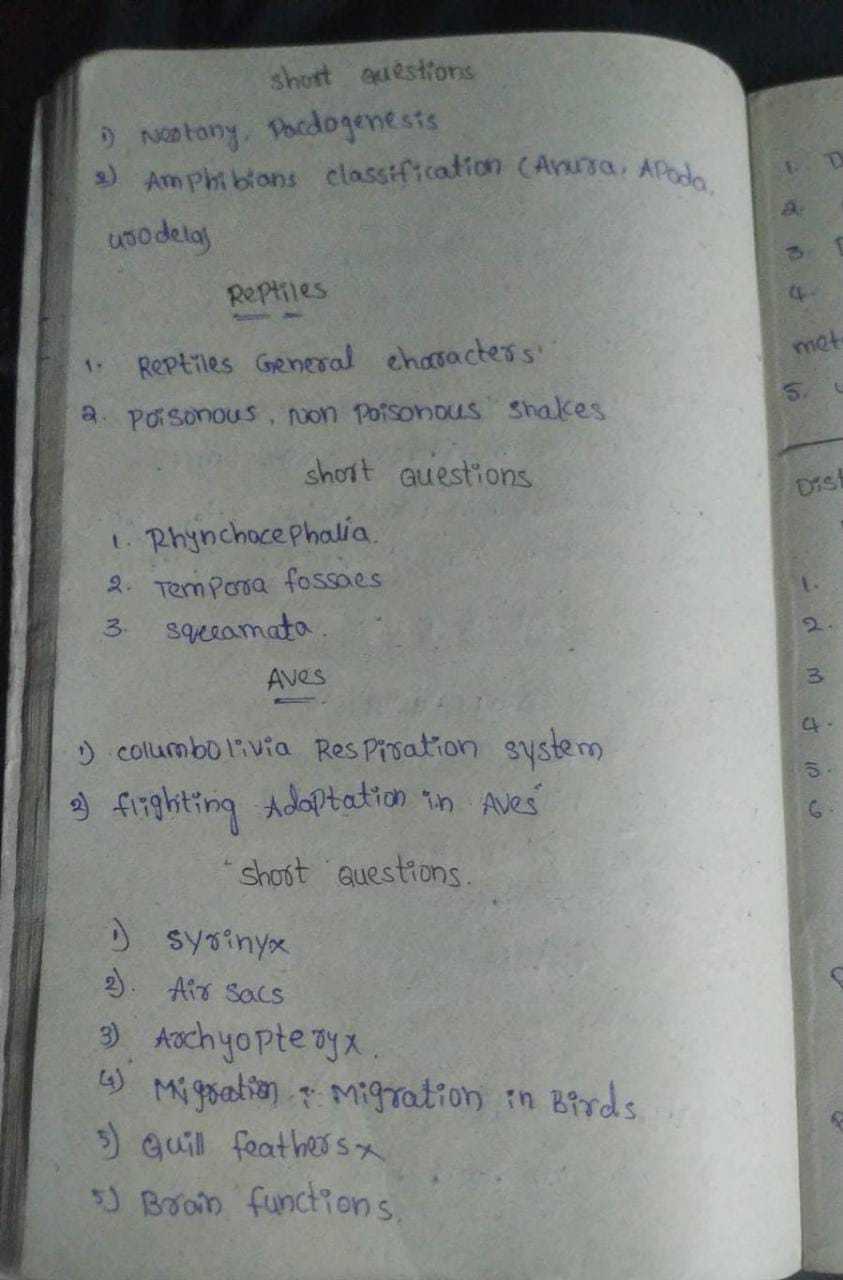 short questions
1) Neotony, Pacdogenesis
2) Amphibians classification (Anura, APoda,
urodela)
Reptiles
1. Reptiles General characters
2. Poisonous, Non Poisonous snakes
short Questions
1. Rhynchocephalia.
2. Tempora fossaes
3. squamata.
Aves
1) columbolivia Respiration system
2) flighting Adaptation in Aves
short Questions.
1) Syrinyx
2). Air sacs
3) Archyopteryx.
4) Migration : Migration in Birds
5) Quill feathers x
5) Brain functions.
1. D
2.
3
4.
met
5.
Dist
1.
2.
3
4.
5.
6.